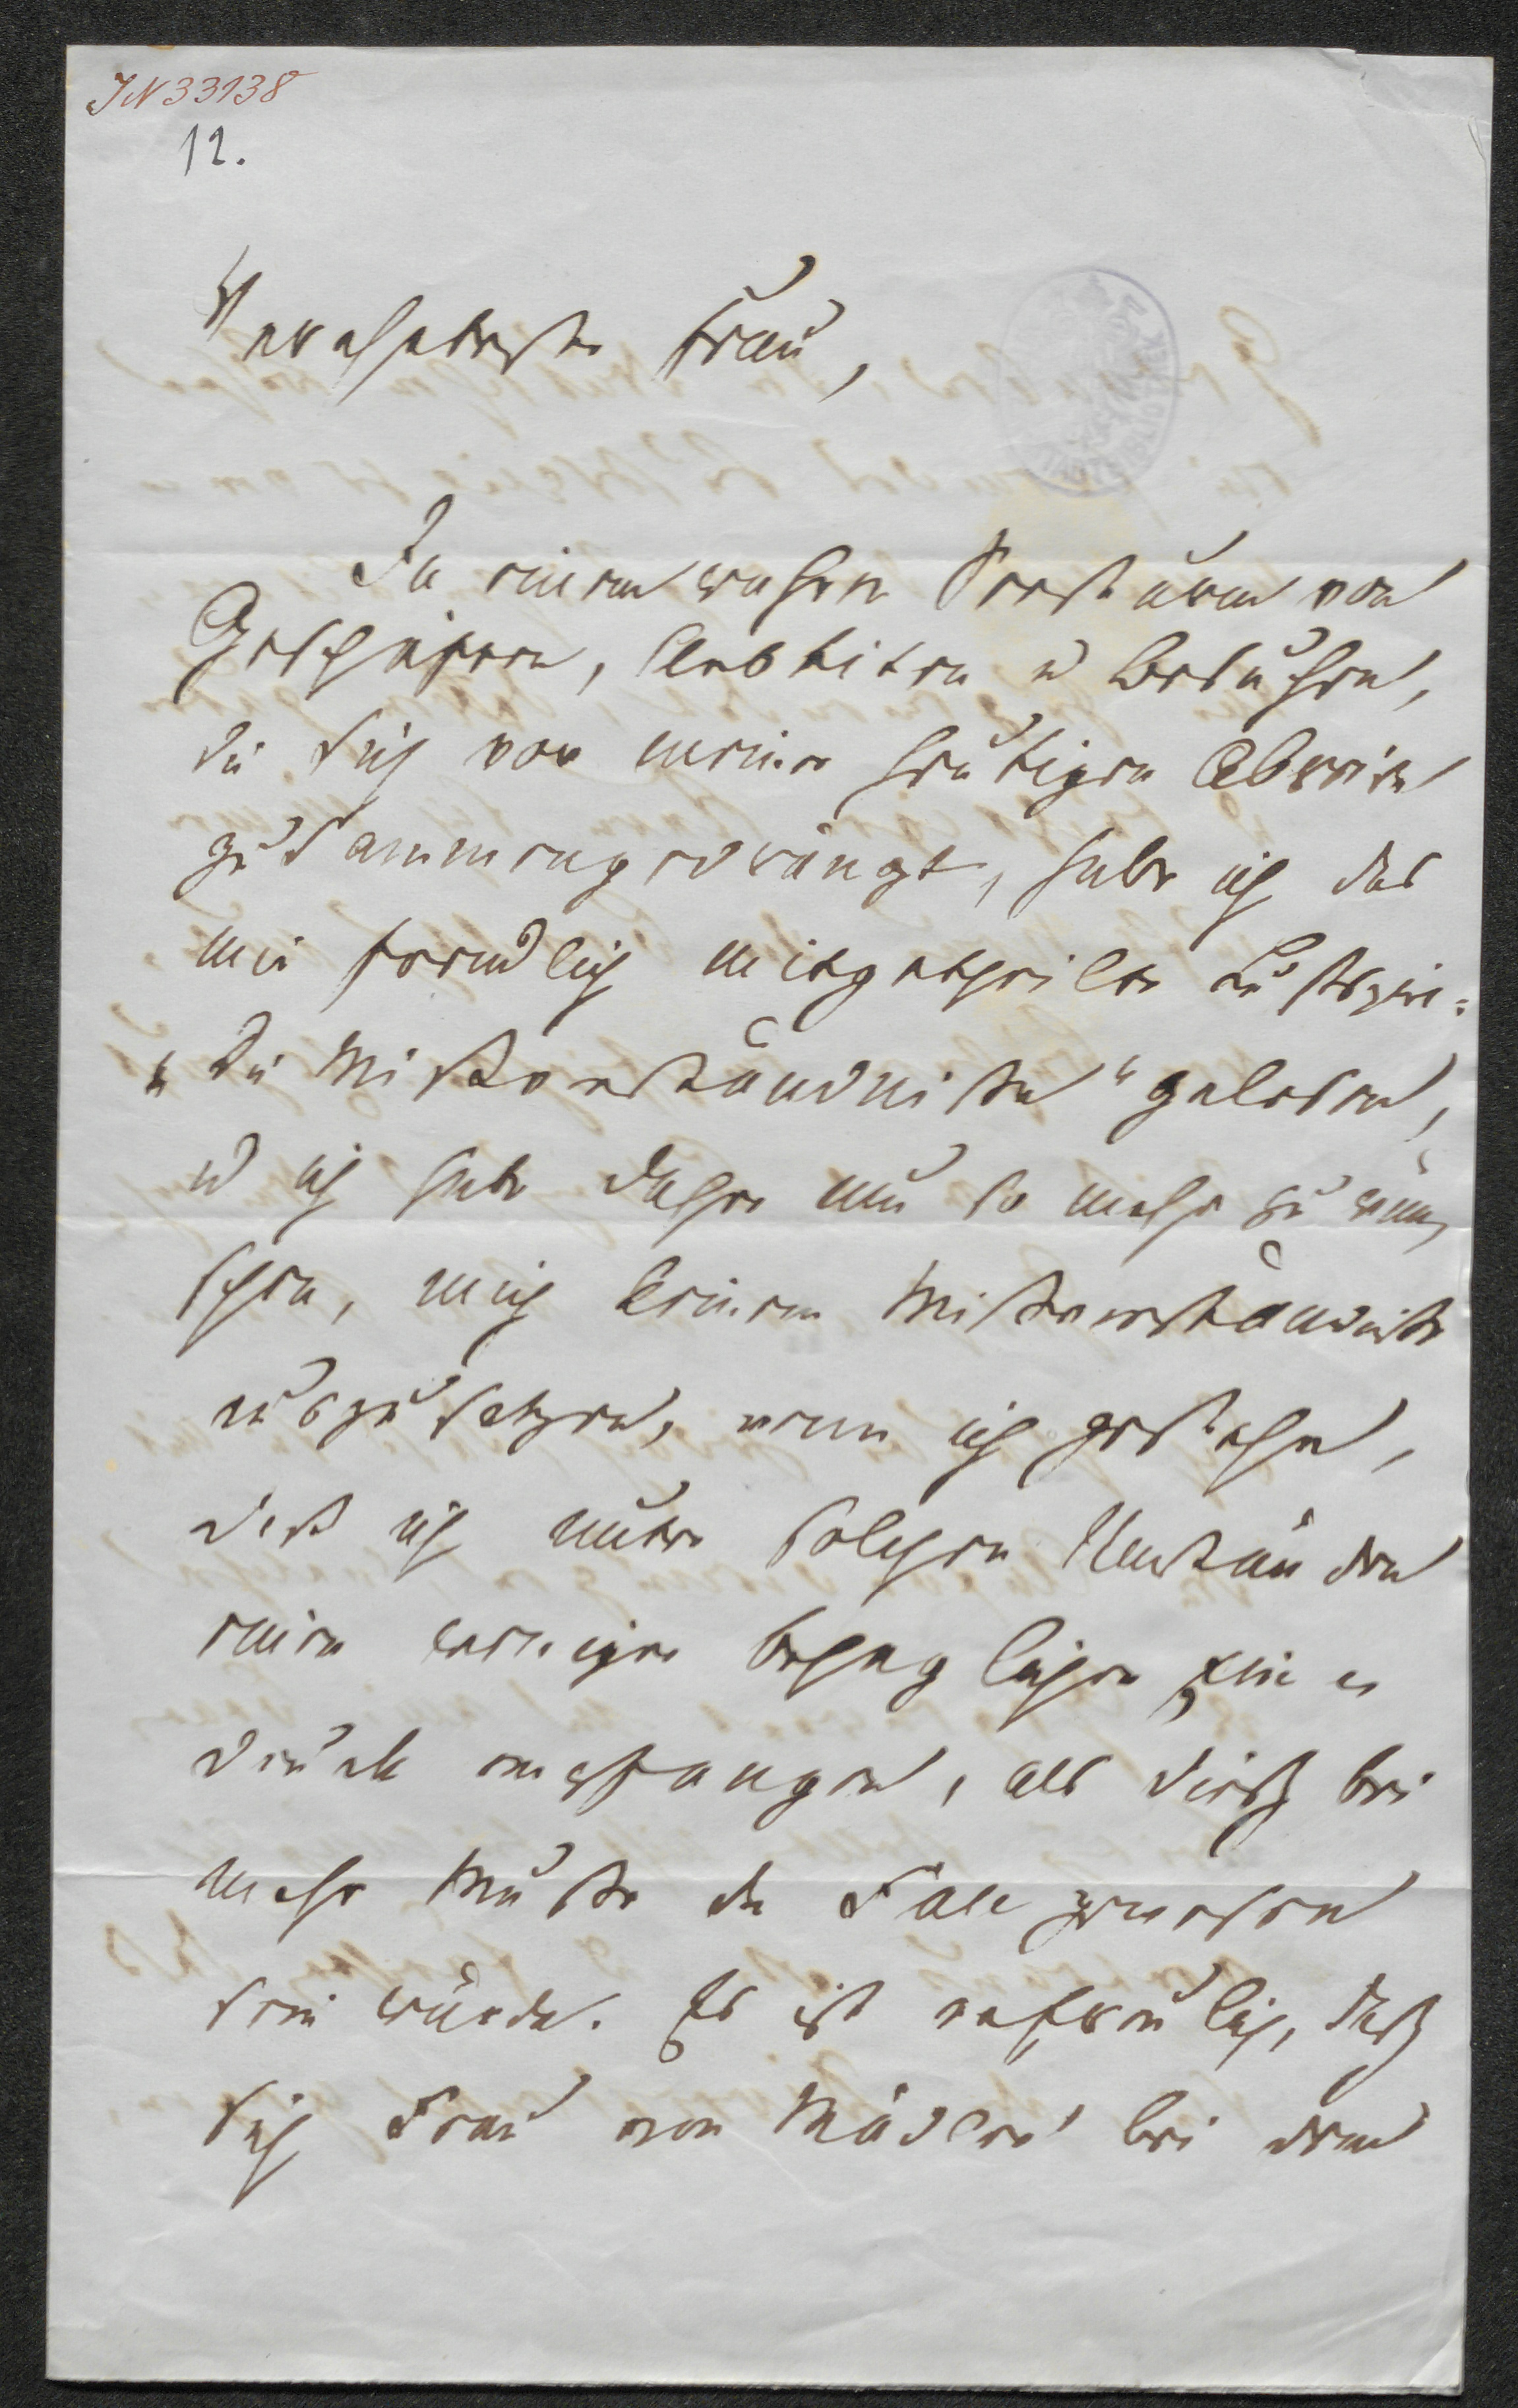 JN 33138
12.
Verehrteste Frau,
In einem wahren Seesturm von
Geschäften, Arbeiten u Besuchen,
die sich vor meiner heutigen Abreise
zusammengedrängt, habe ich das
mir freundlich mitgetheilte Lustspiel
„Die Mißverständnisse" gelesen,
u ich habe daher um so mehr zu wün
schen, mich keinem Mißverständniße
auszusetzen, wenn ich gestehe,
daß ich unter solchen Umständen
einen weniger behaglichen Ein
druck empfangen, als dieß bei
mehr Muße der Fall gewesen
sein würde. Es ist erfreulich, daß
sich Frau von Mädler bei dem